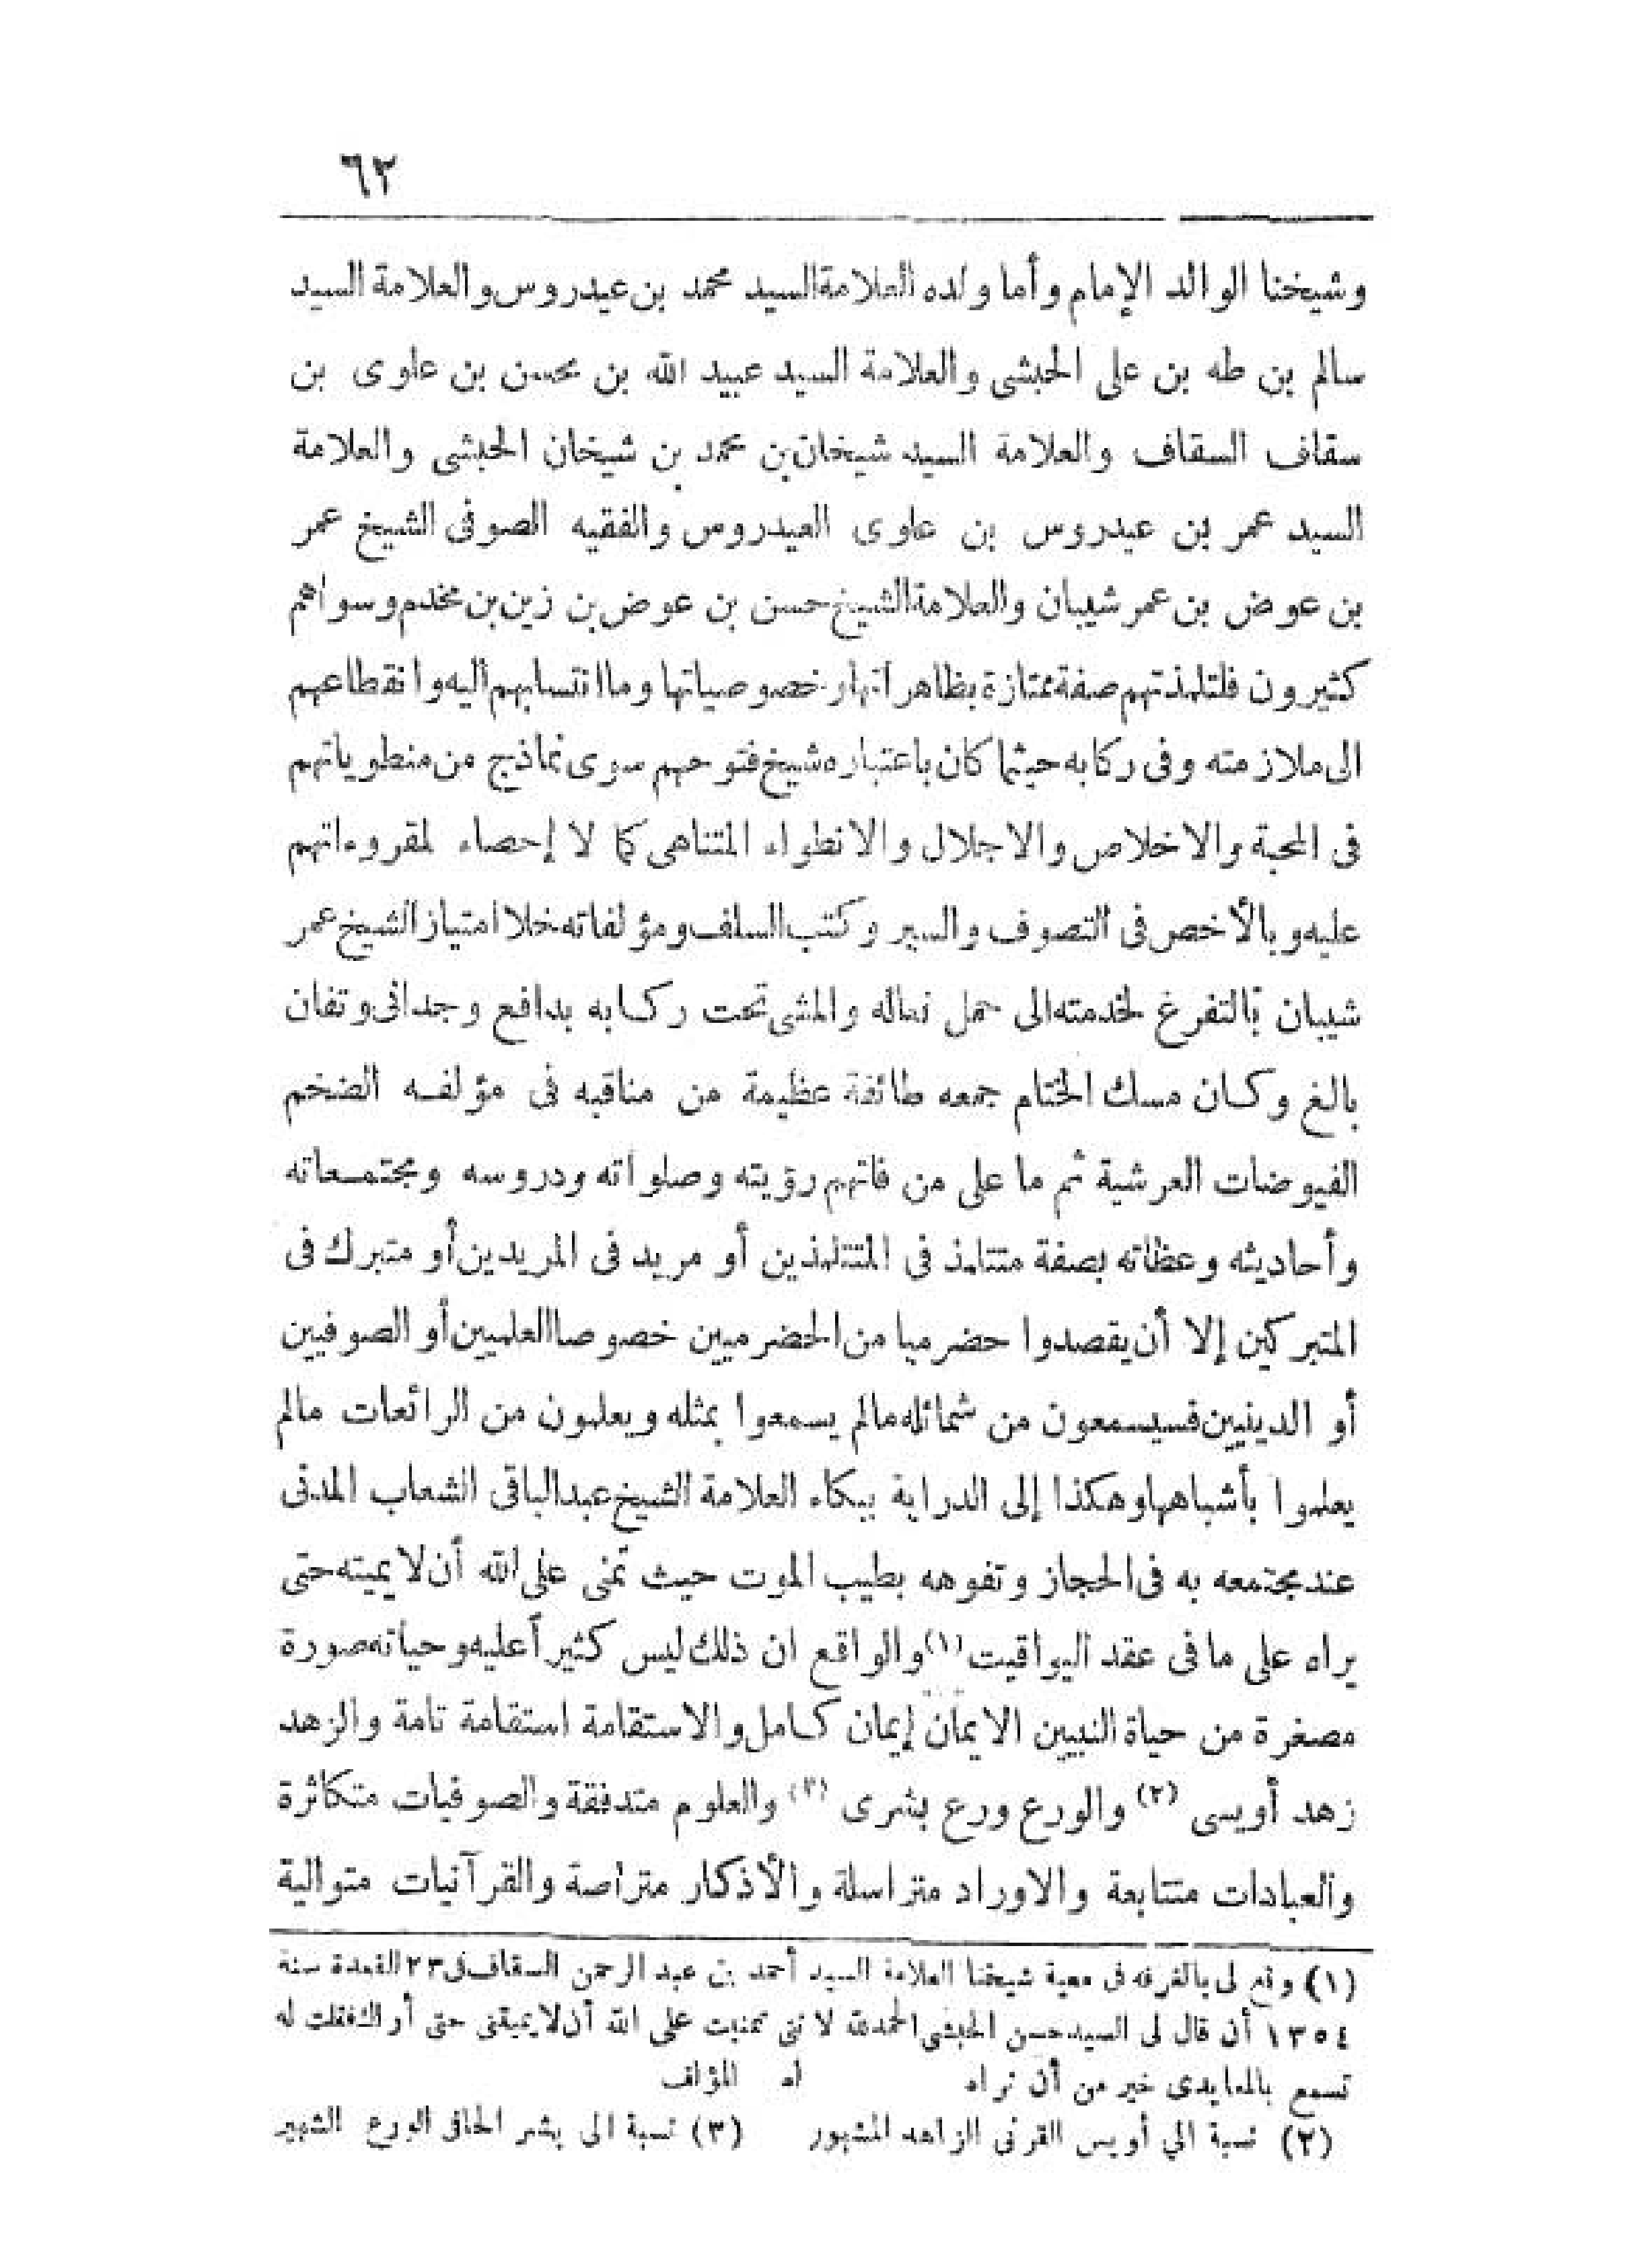 ٦٣
وشيخنا الوالد الإمام وأما ولده العلامة السيد محمد بن عيدروس والعلامة السيد
سالم بن طه بن على الحبشى والعلامة السيد عبيد الله بن محسن بن علوى بن
سقاف السقاف والعلامة السيد شيخان بن محمد بن شيخان الحبشى والعلامة
السيد عمر بن عيدروس بن علوى العيدروس والفقيه الصوفى الشيخ عمر
بن عوض بن عمر شيبان والعلامة الشيخ حسن بن عوض بن زين بن مخدم وسواهم
كثيرون فلتلمذتهم صفة ممتازة بظاهر انهار خصوصياتها وما انتسابهم اليه وانقطاعهم
الى ملازمته وفى ركابه حيثما كان باعتباره شيخ فتوحهم سوى نماذج من منطوياتهم
فى المحبة والاخلاص والاجلال والانطواء المتناهى كما لا إحصاء لمقروءاتهم
عليه وبالأخص فى التصوف والسير وكتب السلف ومؤلفاته خلا امتياز الشيخ عمر
شيبان بالتفرغ لخدمته الى حمل نعاله والمشى تحت ركابه بدافع وجدانى وتفان
بالغ وكان مسك الختام جمعه طائفة عظيمة من مناقبه فى مؤلفه الضخم
الفيوضات العرشية ثم ما على من فاتهم رؤيته وصلواته ودروسه ومجتمعاته
وأحاديثه وعظاته بصفة متتلمذ فى المتتلمذين أو مريد فى المريدين أو متبرك فى
المتبركين إلا أن يقصدوا حضرميا من الحضرميين خصوصا العلميين أو الصوفيين
أو الدينيين فسيسمعون من شمائله مالم يسمعوا بمثله ويعلمون من الرائعات مالم
يعلموا بأشباهها وهكذا إلى الدراية ببكاء العلامة الشيخ عبد الباقى الشعاب المدنى
عند مجتمعه به فى الحجاز وتفوهه بطيب الموت حيث تمنى على الله أن لا يميته حتى
يراه على ما فى عقد اليواقيت (١) والواقع ان ذلك ليس كثيراً عليه وحياته صورة
مصغرة من حياة النبيين الايمان إيمان كامل والاستقامة استقامة تامة والزهد
زهد أويسى (٢) والورع ورع بشرى (٣) والعلوم متدفقة والصوفيات متكاثرة
والعبادات متتابعة والاوراد متراسلة والأذكار متراصة والقرآنيات متوالية
(١) وقع لى بالغرفه فى معية شيخنا العلامة السيد أحمد بن عبد الرحمن السقاف فى ٢٣ القعدة سنة
١٣٥٤ أن قال لى السيد حسن الحبشى الحمد لله لاننى تمنيت على الله أن لا يميتنى حتى أراك فقلت له
تسمع بالمعايدى خير من أن تراه اه المؤلف
(٢) نسبة الى أويس القرنى الزاهد المشهور (٣) نسبة الى بشر الحافى الورع الشهير